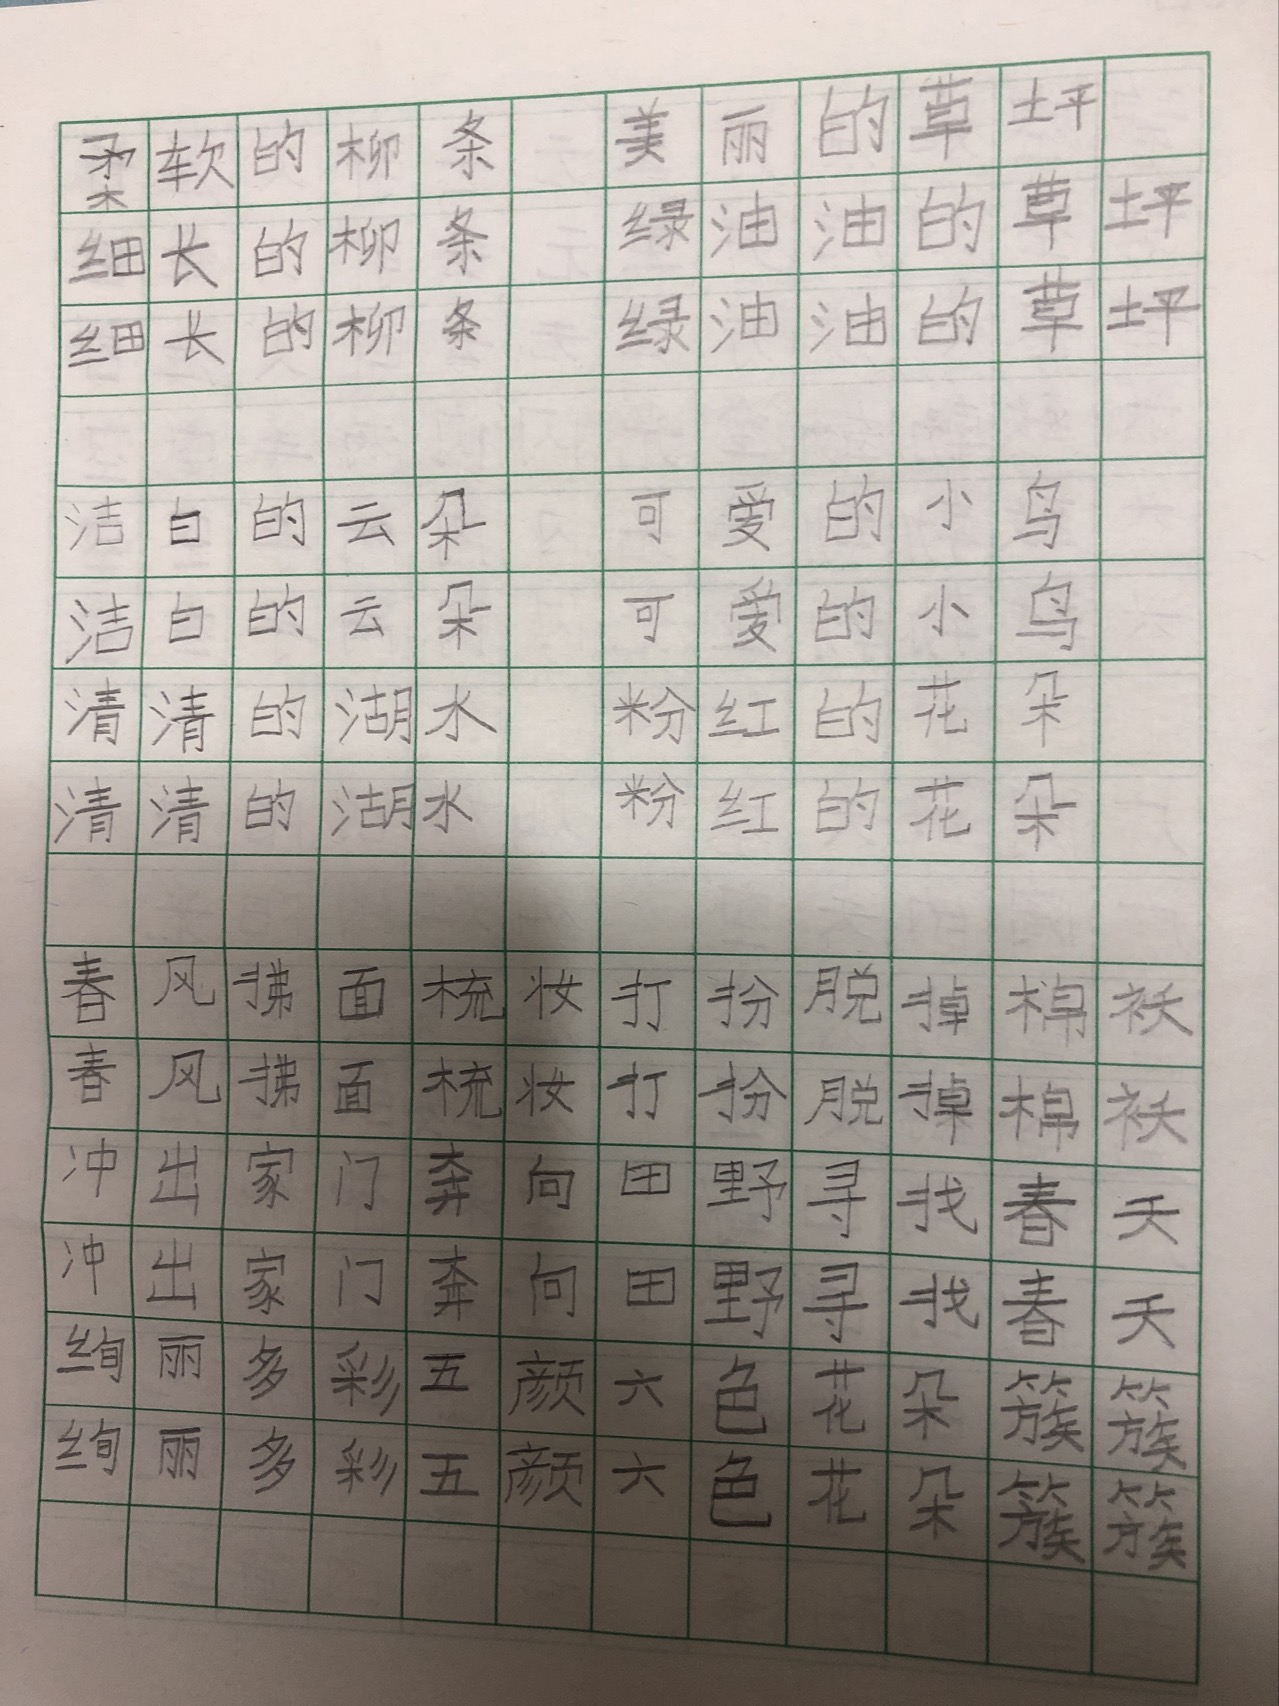 柔软的柳条 美丽的草坪
细长的柳条 绿油油的草坪
细长的柳条 绿油油的草坪
洁白的云朵 可爱的小鸟
洁白的云朵 可爱的小鸟
清清的湖水 粉红的花朵
清清的湖水 粉红的花朵
春风拂面梳妆打扮脱掉棉袄
春风拂面梳妆打扮脱掉棉袄
冲出家门奔向田野寻找春天
冲出家门奔向田野寻找春天
绚丽多彩五颜六色花朵簇簇
绚丽多彩五颜六色花朵簇簇